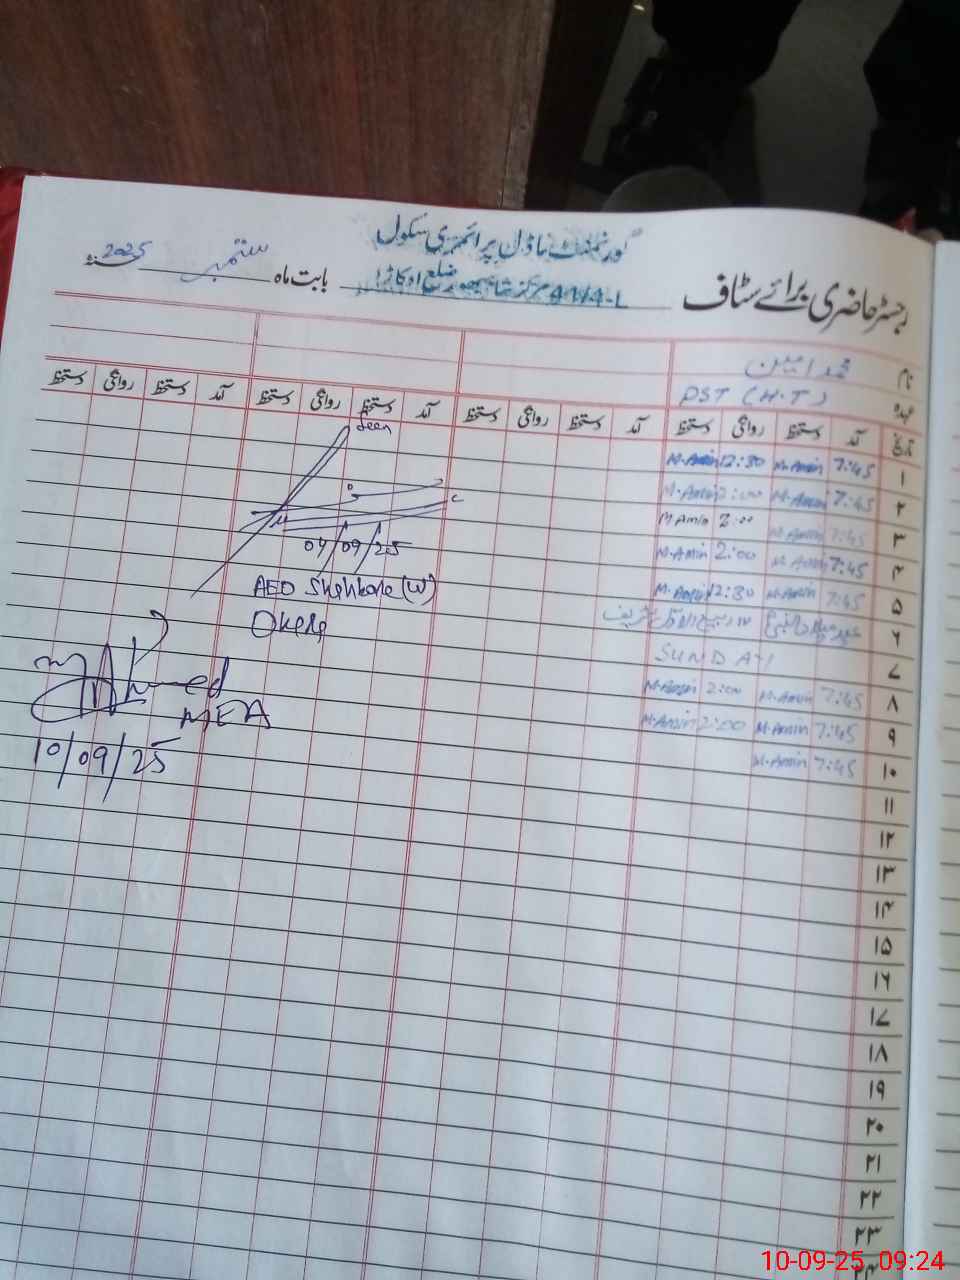 گورنمنٹ ماڈل پرائمری سکول
رجسٹر حاضری برائے سٹاف 41/4-L مرکز ضلع اوکاڑہ بابت ماہ ستمبر 2025
نام محمد امین
عہدہ PST (H.T)
تاریخ آمد دستخط روانگی دستخط آمد دستخط روانگی دستخط آمد دستخط روانگی دستخط آمد دستخط روانگی دستخط
۱ 7:45 M.Amin 12:30 M.Amin
۲ 7:45 M.Amin 2:00 M.Amin
۳ 7:45 M.Amin 2:00 M Amin
۴ 7:45 M.Amin 2:00 M.Amin
۵ 7:45 M.Amin 12:30 M.Amin
۶ عید میلاد النبیؐ ربیع الاول شریف
۷ SUNDAY
۸ 7:45 M.Amin 2:00 M.Amin
۹ 7:45 M.Amin 2:00 M.Amin
۱۰ 7:45 M.Amin
۱۱
۱۲
۱۳
۱۴
۱۵
۱۶
۱۷
۱۸
۱۹
۲۰
۲۱
۲۲
۲۳
۲۴
Seen
04/09/25
AEO (W)
Okara
M Ahmed
MEA
10/09/25
10-09-25 09:24